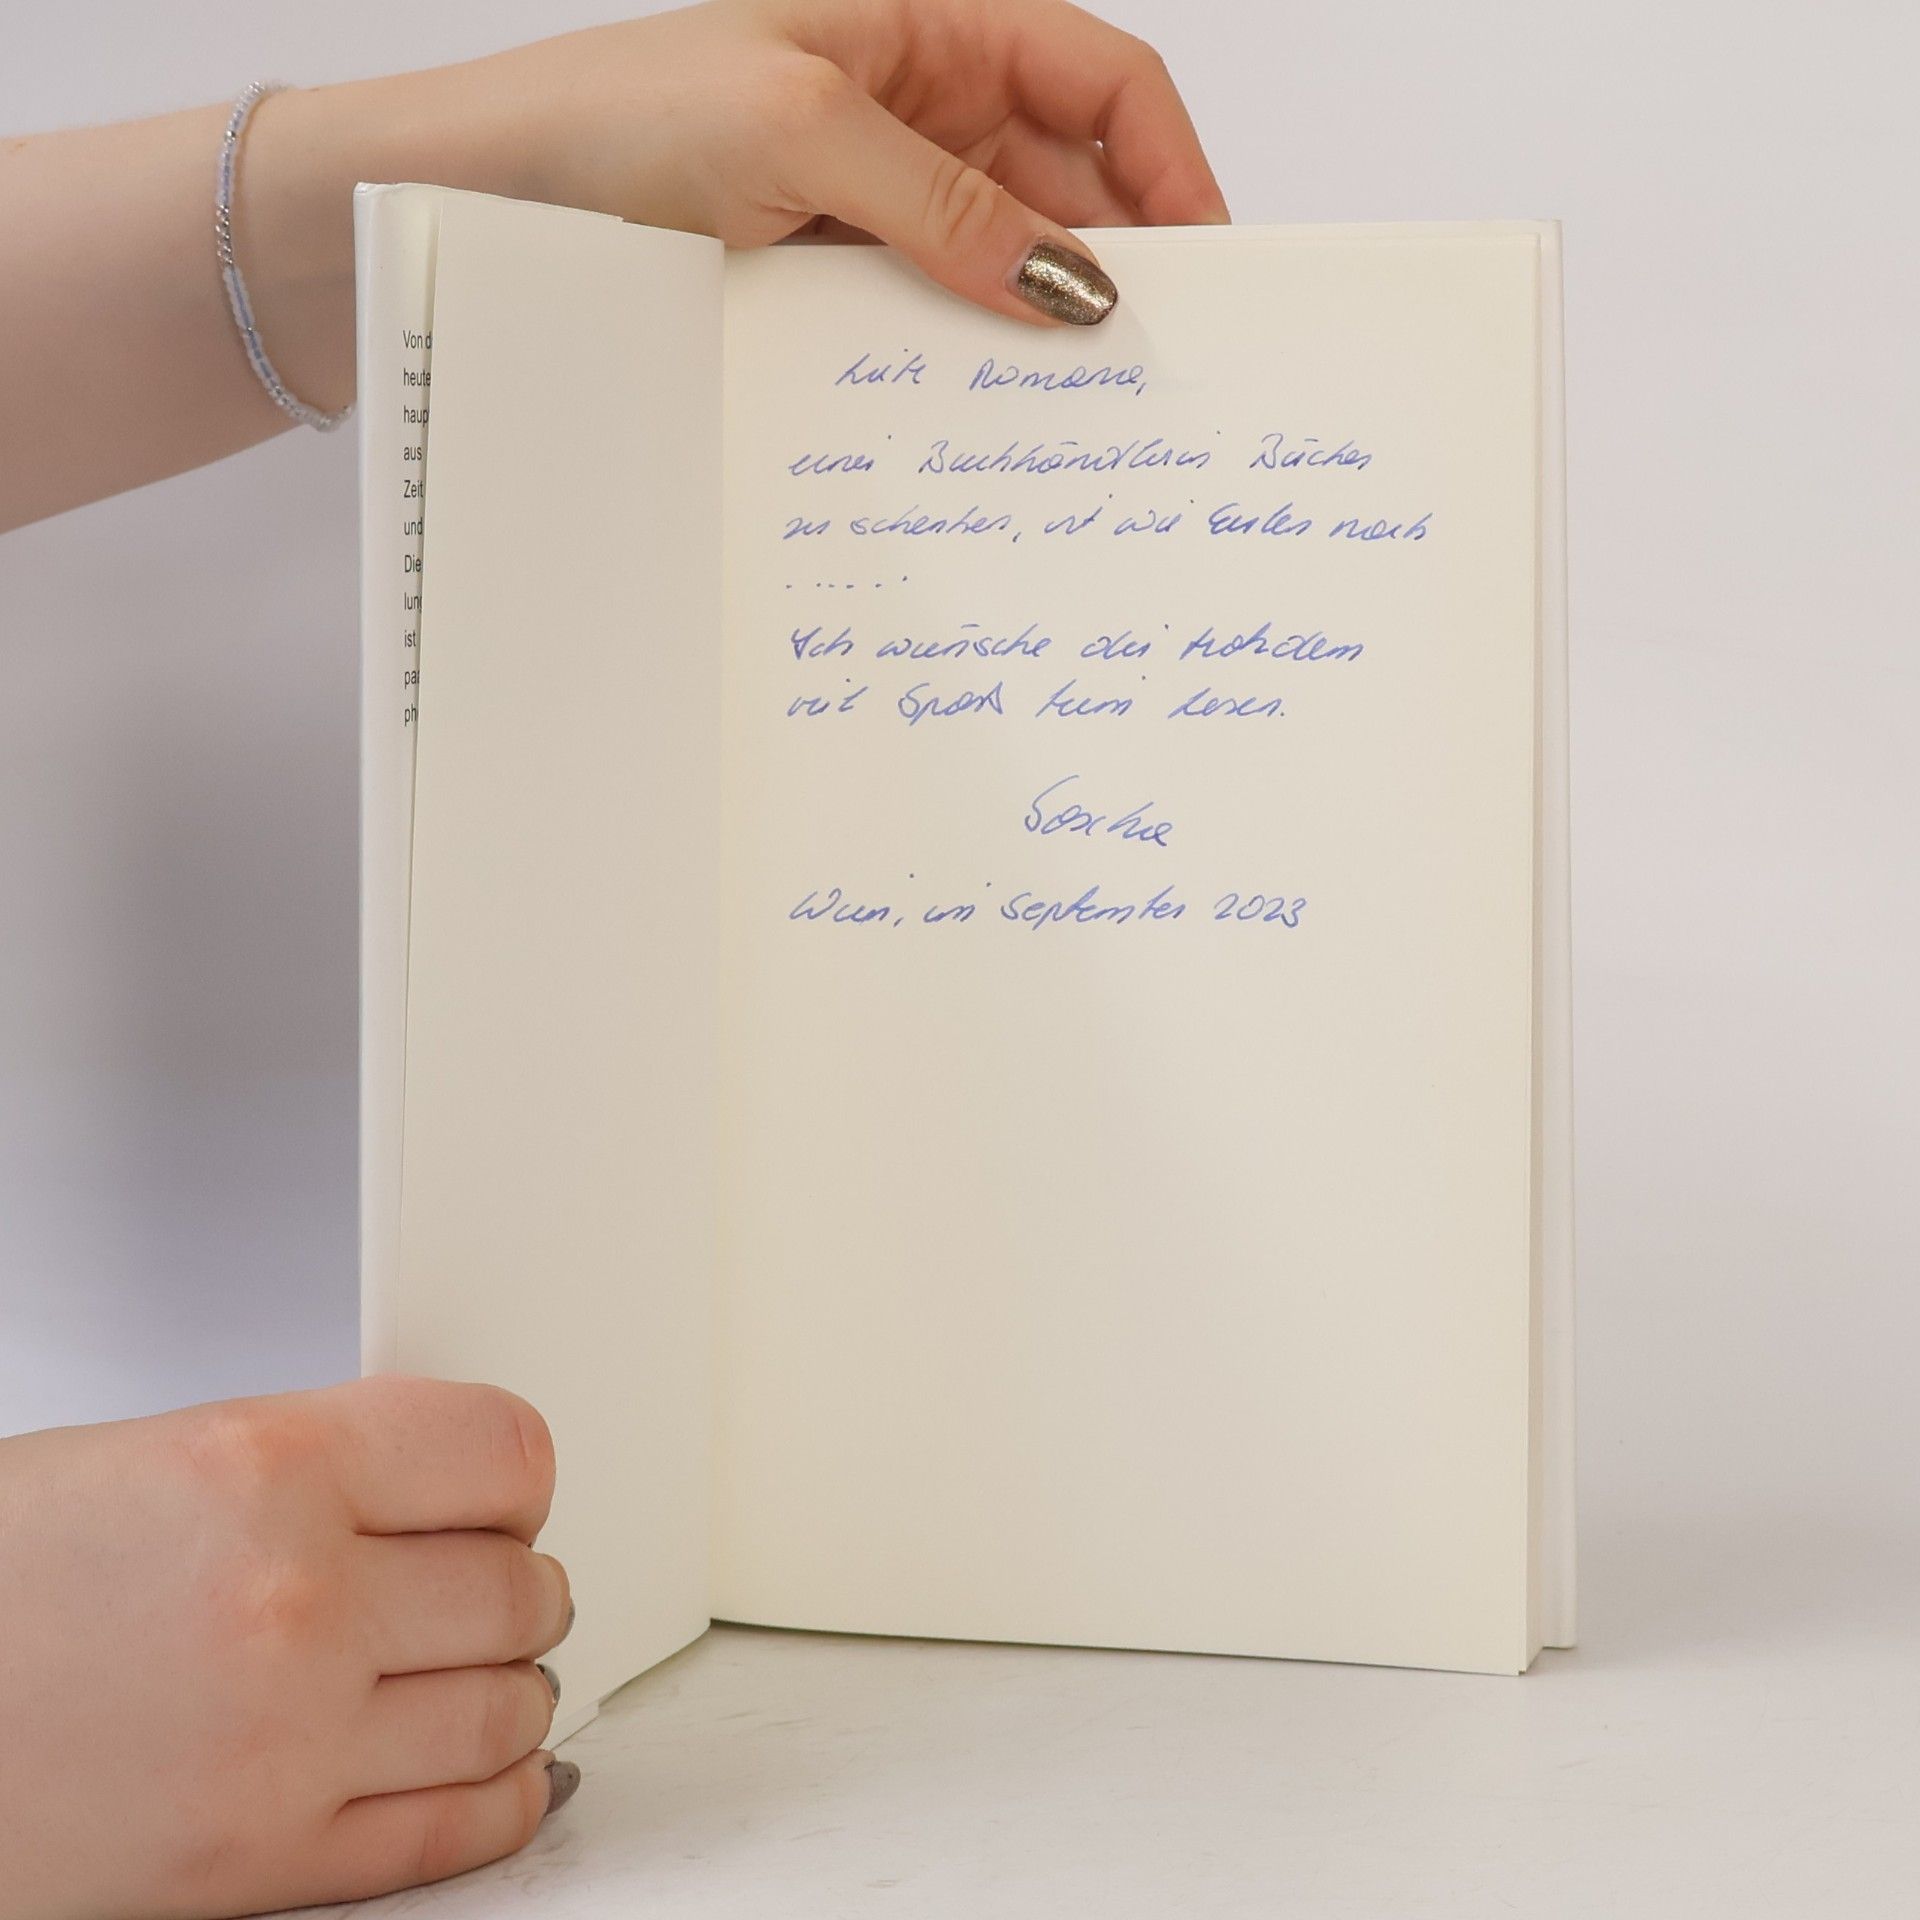 Von d
heute
haup
aus
Zeit
und
Die
lung
ist
par
pho
Liebe Romana,
einer Buchhändlerin Bücher
zu schenken, ist wie Eulen nach
......
Ich wünsche dir trotzdem
viel Spaß beim Lesen.
Sascha
Wien, im September 2023